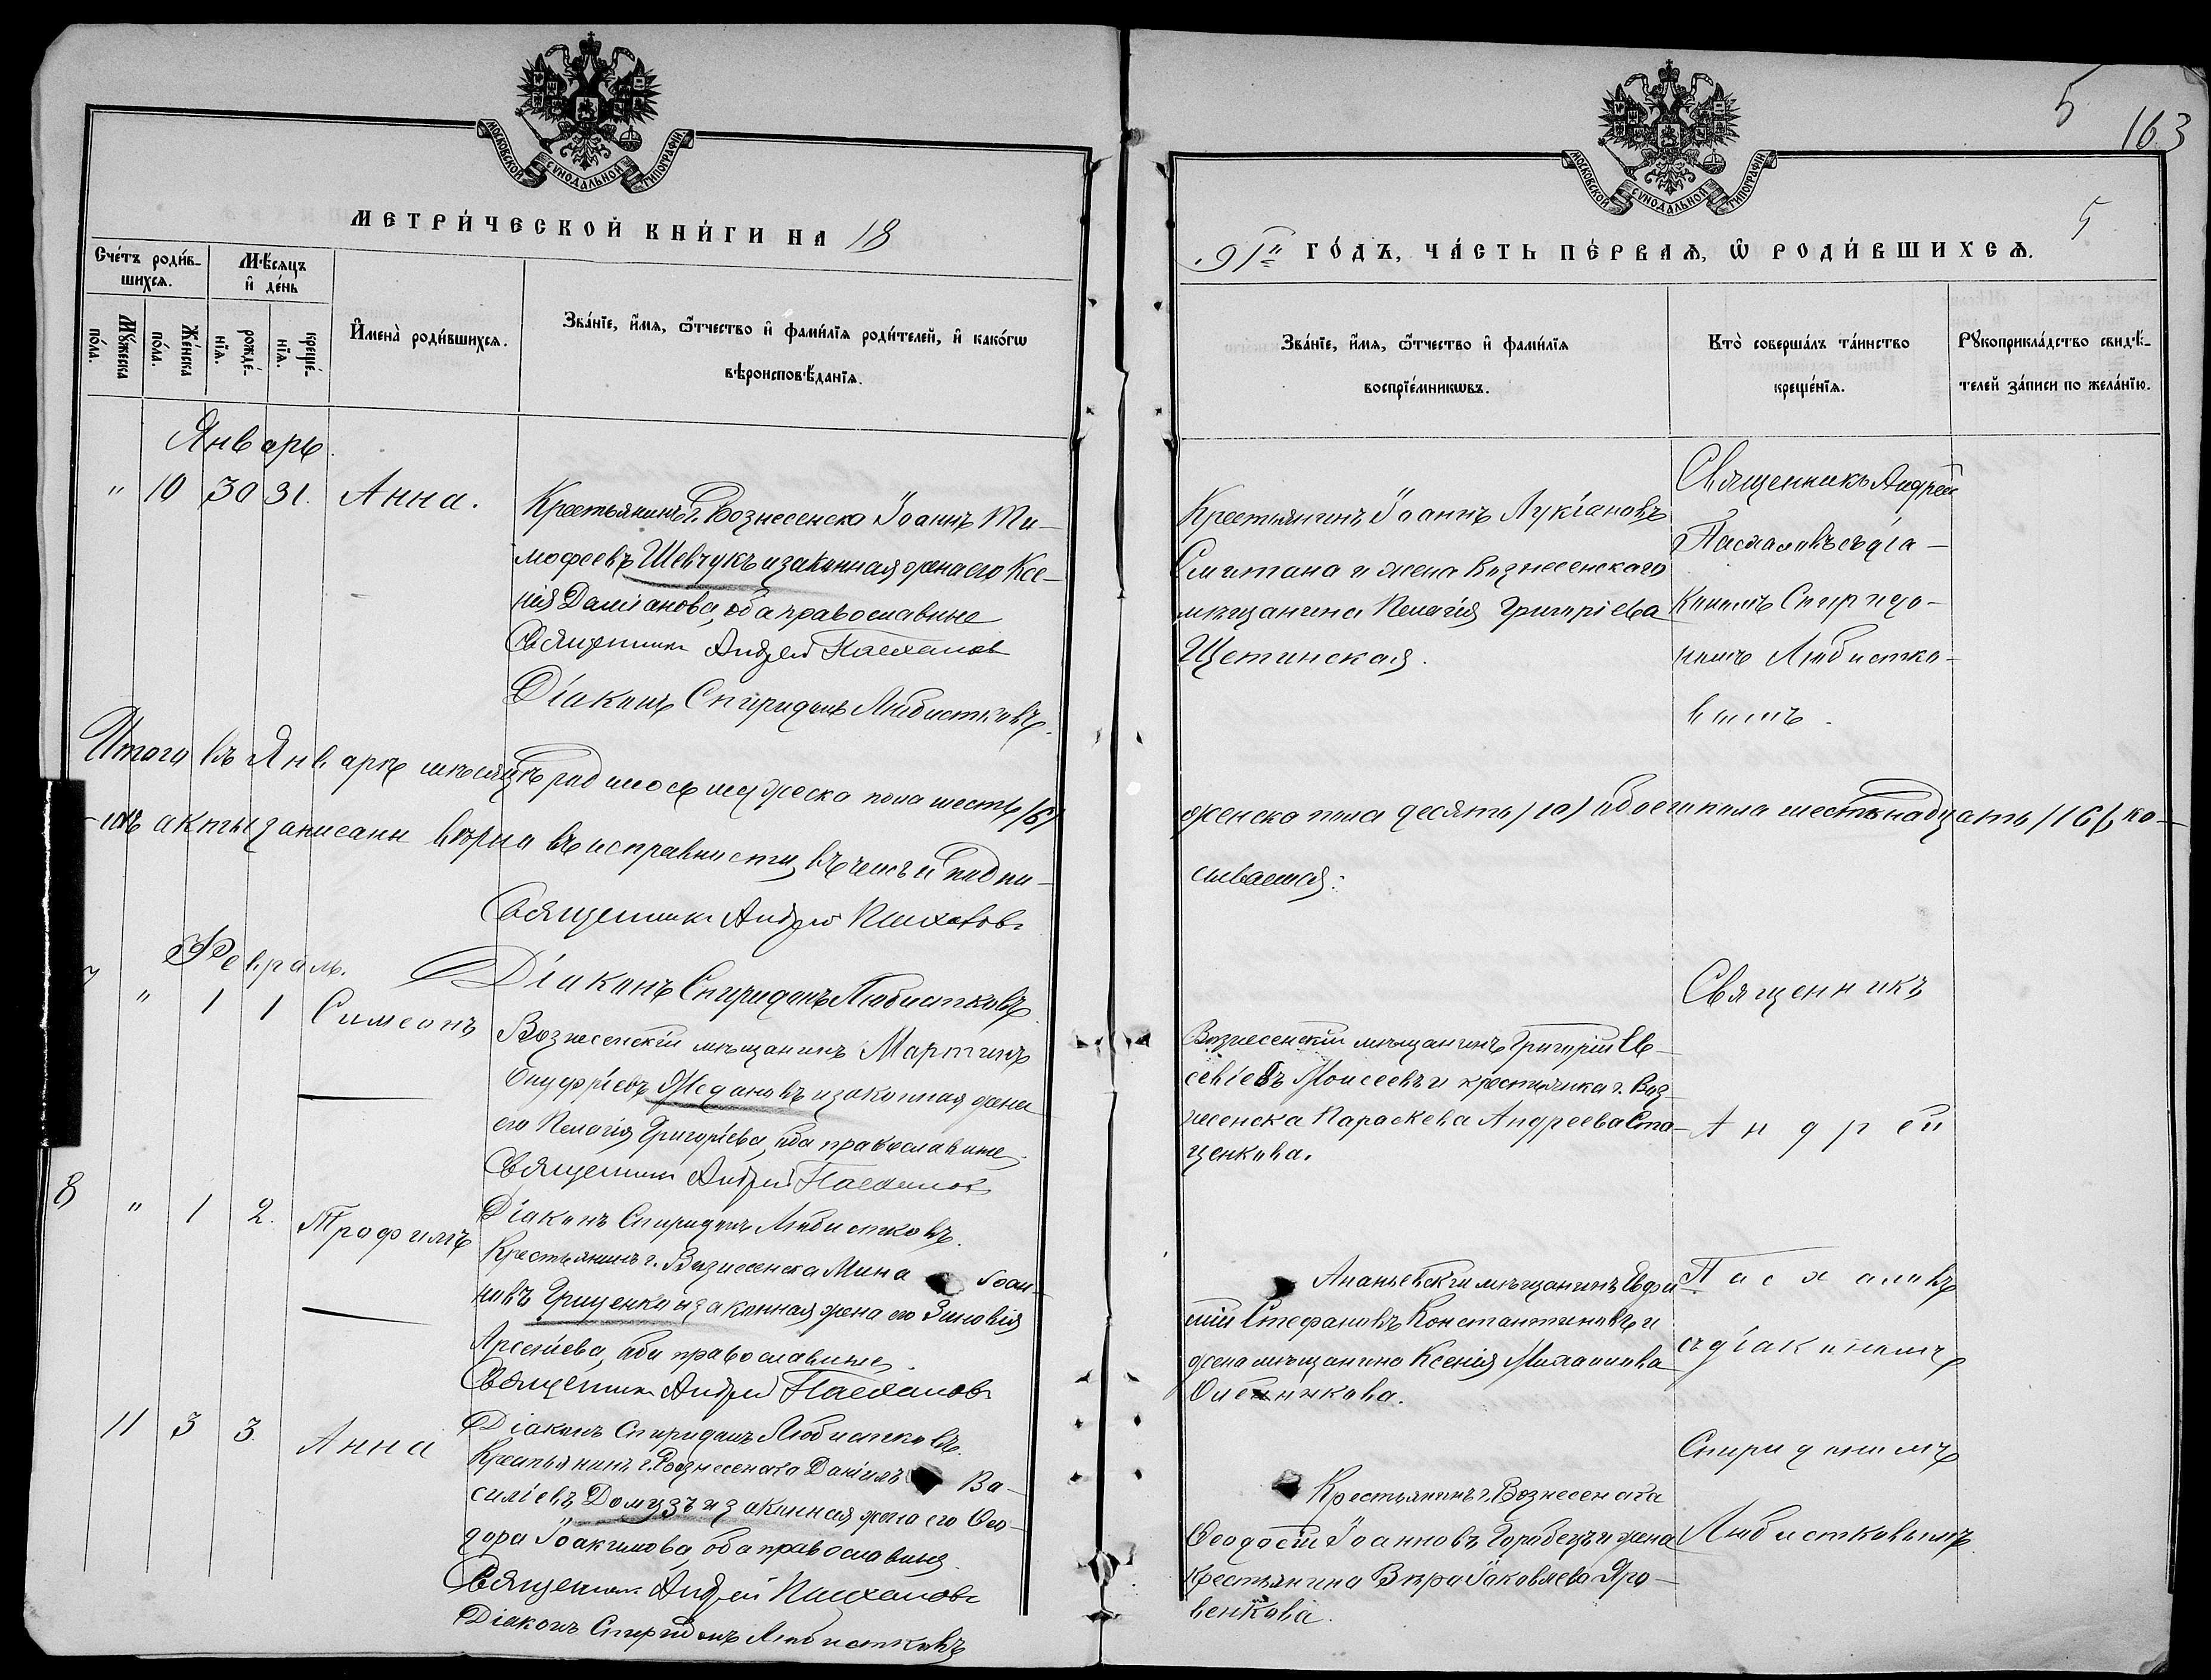 МОСКОВСКОЙ СѴНОДАЛЬНОЙ ТИПОГРАФІИ
МЕТРИ́ЧЕСКОЙ КНИ́ГИ НА 18
Сче́тъ роди́в-
шихсѧ.
М҃ѣсѧцъ
и҆ де́нь
Мꙋ́жеска
по́ла.
Же́нска
по́ла.
рожде́-
нїѧ.
креще́-
нїѧ.
И҆мена̀ роди́вшихсѧ.
Зва́нїе, и҆́мѧ, ѻ҆́тчество и҆ фами́лїѧ роди́телей, и҆ како́гѡ
вѣроисповѣ́данїѧ.
Январь.
" 10 30 31. Анна.
Крестьянинъ г. Вознесенска Іоаннъ Ти-
мофеевъ Шевчукъ и законная жена его Ксе-
нія Даміанова, оба православные
Священникъ Андрей Пасхаловъ
Діаконъ Спиридонъ Любистковъ.
Итого въ Январѣ мѣсяцѣ родилось мужеска пола шесть /6/
-ихъ акты записаны вѣрно въ исправности, въ чемъ и подпи-
Священникъ Андрей Пасхаловъ
Діаконъ Спиридонъ Любистковъ.
Февраль.
7 " 1 1 Симеонъ
Вознесенскій мѣщанинъ Мартинъ
Онуфріевъ Ждановъ и законная жена
его Пелагія Григоріева, оба православные.
Священникъ Андрей Пасхаловъ
Діаконъ Спиридонъ Любистковъ.
8 " 1 2. Трофимъ
Крестьянинъ г. Вознесенска Мина Іоан-
новъ Гриценко и законная жена его Зиновія
Арсеніева, оба православные.
Священникъ Андрей Пасхаловъ
Діаконъ Спиридонъ Любистковъ.
11 3 3. Анна
Крестьянинъ г. Вознесенска Даніилъ Ва-
силіевъ Домузъ и законная жена его Ѳео-
дора Іоакимова, оба православные.
Священникъ Андрей Пасхаловъ
Діаконъ Спиридонъ Любистковъ
5
163
МОСКОВСКОЙ СѴНОДАЛЬНОЙ ТИПОГРАФІИ
5
91й ГО́ДЪ, ЧА́СТЬ ПЕ́РВАѦ, Ѡ҆ РОДИ́ВШИХСѦ.
Зва́нїе, и҆́мѧ, ѻ҆́тчество и҆ фами́лїѧ
воспрїе́мникѡвъ.
Кто̀ соверша́лъ та́инство
креще́нїѧ.
Рꙋкоприкла́дство свидѣ́-
телей за́писи по жела́нїю.
Крестьянинъ Іоаннъ Лукіановъ
Смитана и жена Вознесенскаго
мѣщанина Пелагія Григоріева
Щетинская.
Священникъ Андрей
Пасхаловъ съ діа-
кономъ Спиридо-
номъ Любистко-
вымъ.
женска пола десять /10/ обоего пола шестьнадцать /16/, ко-
сываемся:
Вознесенскій мѣщанинъ Григорій Ев-
севіевъ Моисеевъ и крестьянка г. Воз-
несенска Параскева Андреева Ста-
ценкова.
Священникъ
Андрей
Ананьевскій мѣщанинъ Евфи-
мій Стефановъ Константиновъ и
жена мѣщанина Ксенія
Пасхаловъ
съ діакономъ
Спиридономъ
Крестьянинъ г. Вознесенска
Ѳеодосій Іоанновъ Горобецъ и жена
крестьянина Вѣра Іаковлева Яро-
венкова.
Любистковымъ.